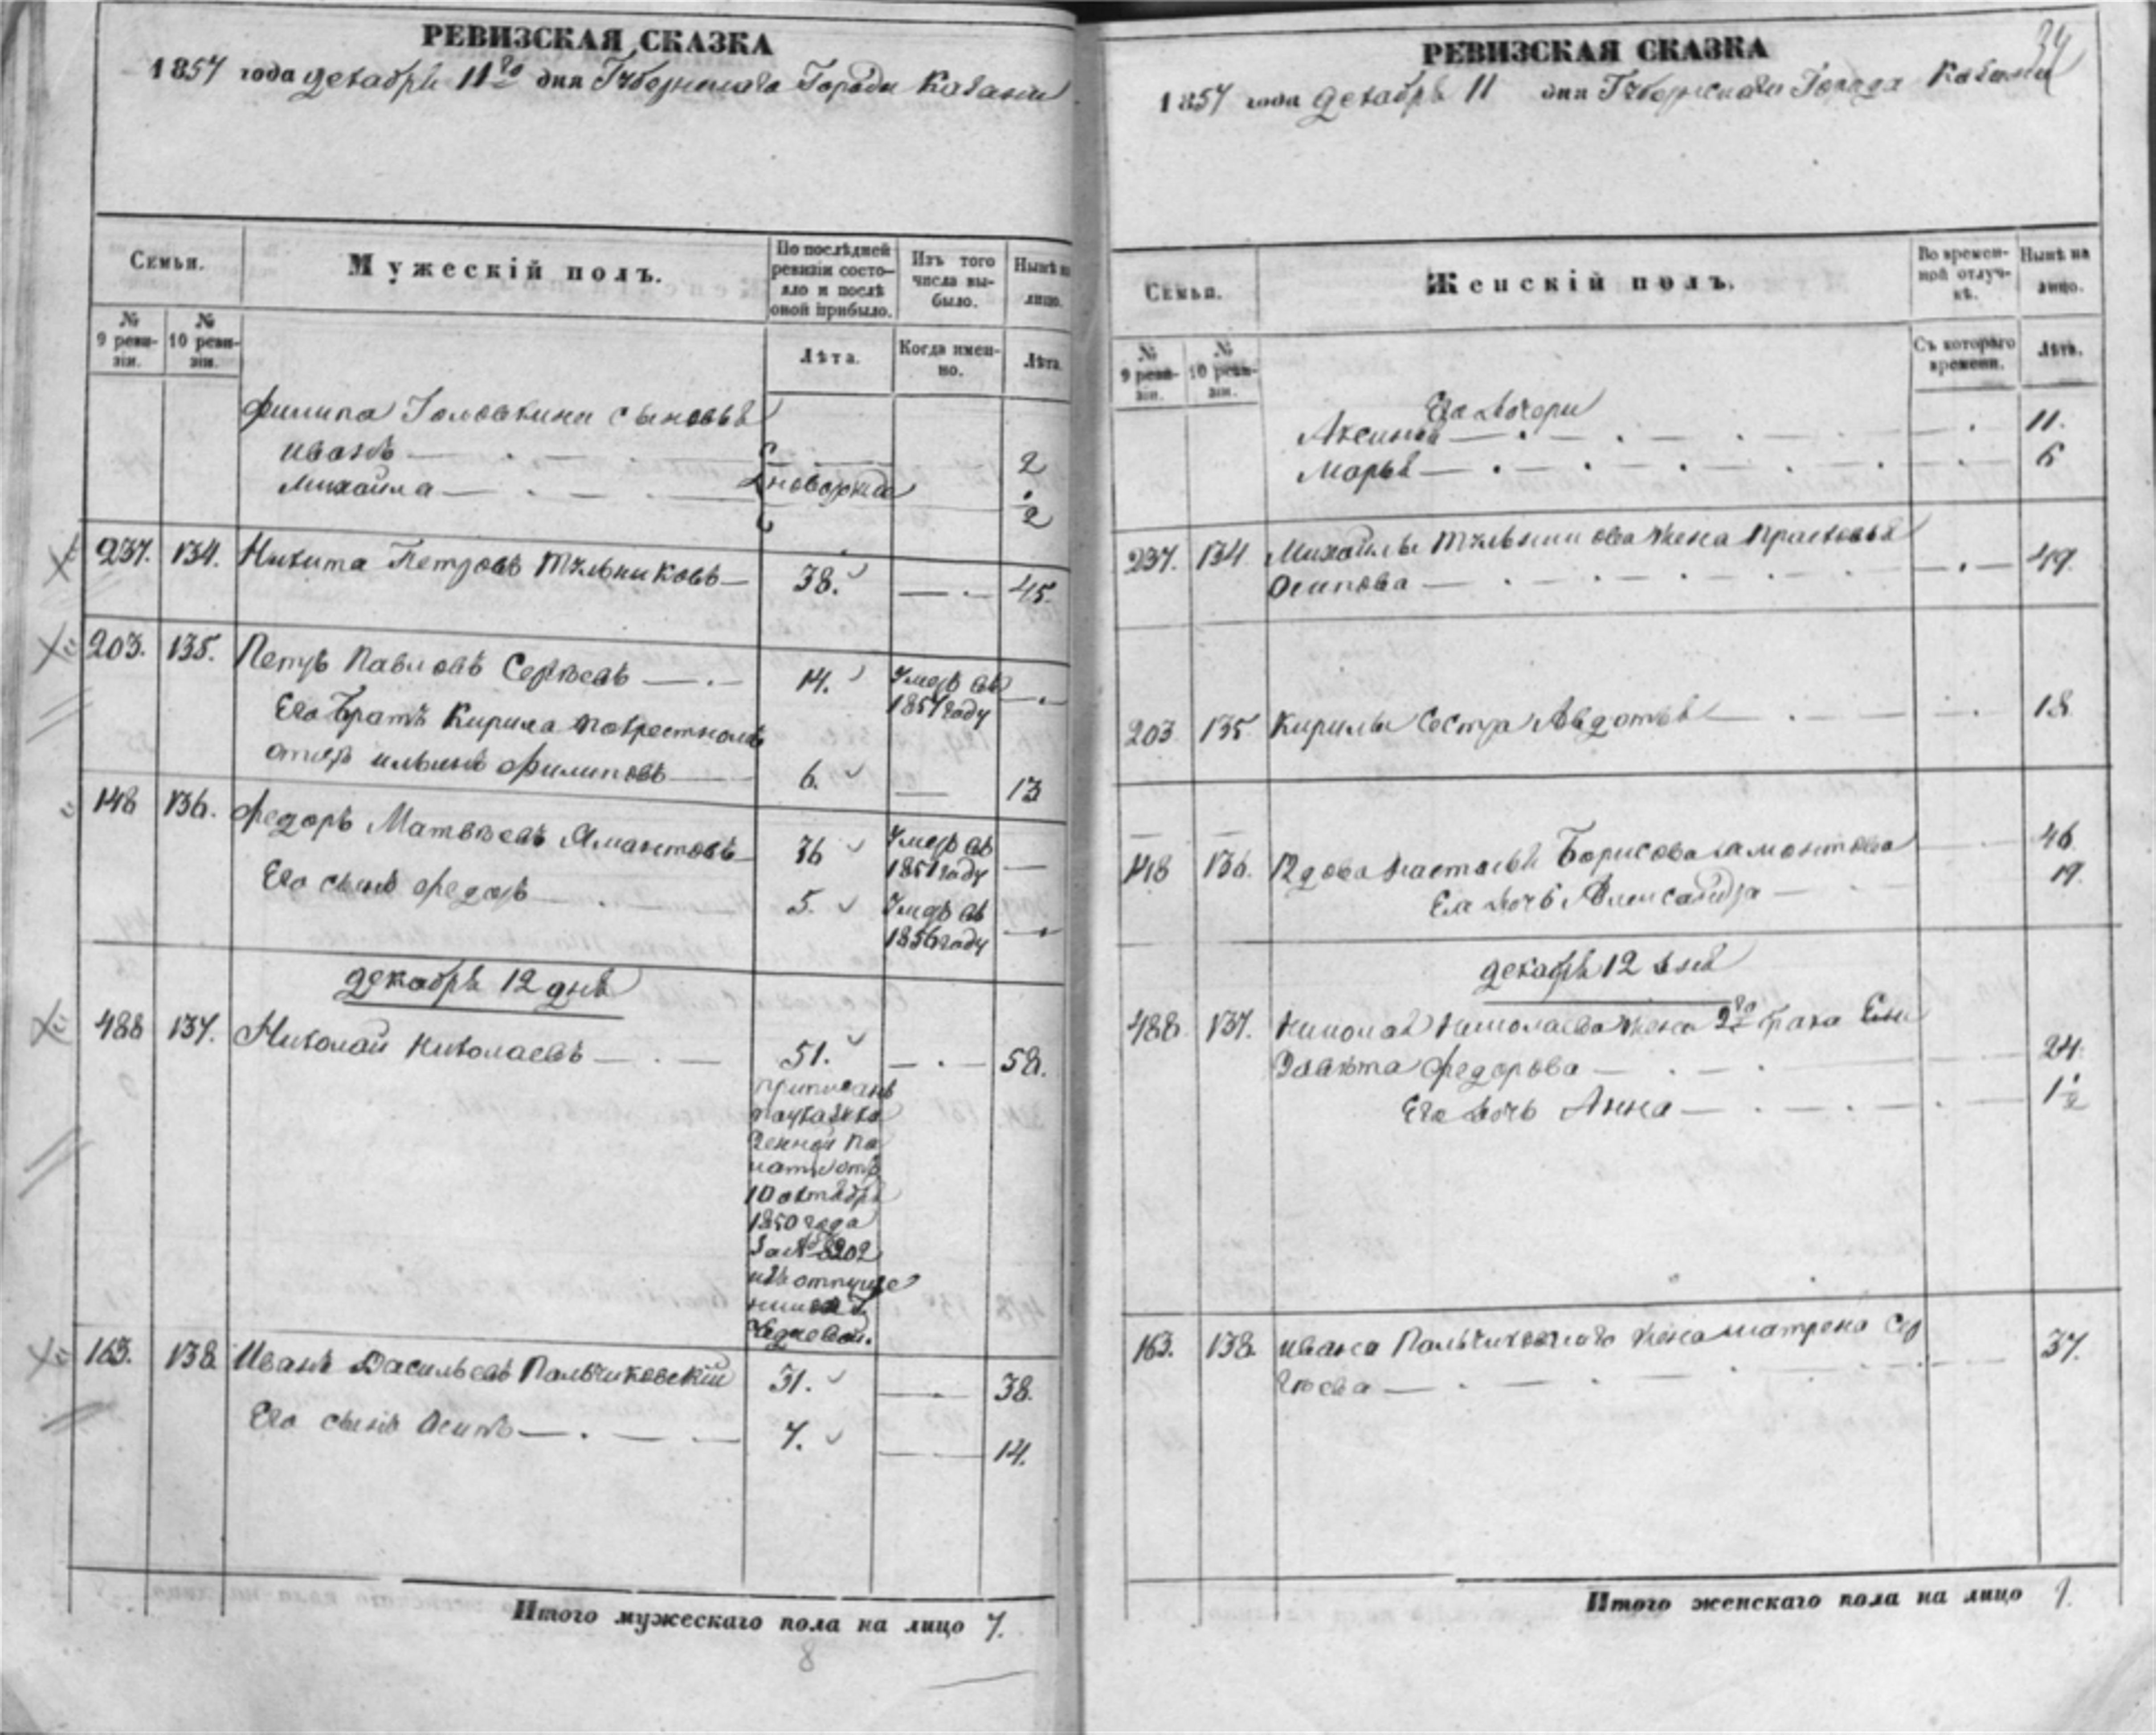 РЕВИЗСКАЯ СКАЗКА
1857 года декабря 11го дня Губернскаго Города Казани
Семьи.
Мужескій полъ.
По послѣдней ревизіи состояло и послѣ оной прибыло.
Изъ того числа выбыло.
Нынѣ на лицо.
№ 9 ревизіи.
№ 10 ревизіи.
Лѣта.
Когда именно.
Лѣта.
Филипа Головкина сыновья
Иванъ 2
Михаила новорожд 1/2
237. 134. Никита Петровъ Тюльниковъ 38. 45.
203. 135. Петръ Павловъ Сергѣевъ 14. Умеръ въ
1857 году
Его братъ Кирила покрестному
отцу Ильинъ Филиповъ 6. 13
148 136. Федоръ Матвѣевъ Амантовъ 36 Умеръ въ
1857 году
Его сынъ Федоръ 5. Умеръ въ
1856 году
декабря 12 дня
488 137. Николай Николаевъ 51. 58.
приписанъ
по указу ка
зенной па
латы отъ
10 октября
1850 года
за № 8202
изъ отпуще
163. 138 Иванъ Васильевъ Пальчиковскій 31. 38.
Его сынъ Осипъ 7. 14.
Итого мужескаго пола на лицо 7.
8
34
РЕВИЗСКАЯ СКАЗКА
1857 года декабря 11 дня Губернскаго Города Казани
Семьи.
Женскій полъ.
Во временной отлучкѣ.
Нынѣ на лицо.
№ 9 ревизіи.
№ 10 ревизіи.
Съ котораго времени.
Лѣта.
Его дочери
Аксинья 11.
Марья 6
237. 134 Михайлы Тюльникова жена Прасковья
Осипова 49.
203 135 Кирилы сестра Авдотья 18
148 136. Вдова Настасья Борисова Амонтова 46
Ея дочь Александра 19.
декабря 12 дня
488. 137. Николая Николаева жена 2го брака Ели
завѣта Федорова 24.
Его дочь Анна 1 1/2
163. 138. Ивана Пальчиковскаго жена Матрена Сер
гѣева 37.
Итого женскаго пола на лицо 9.